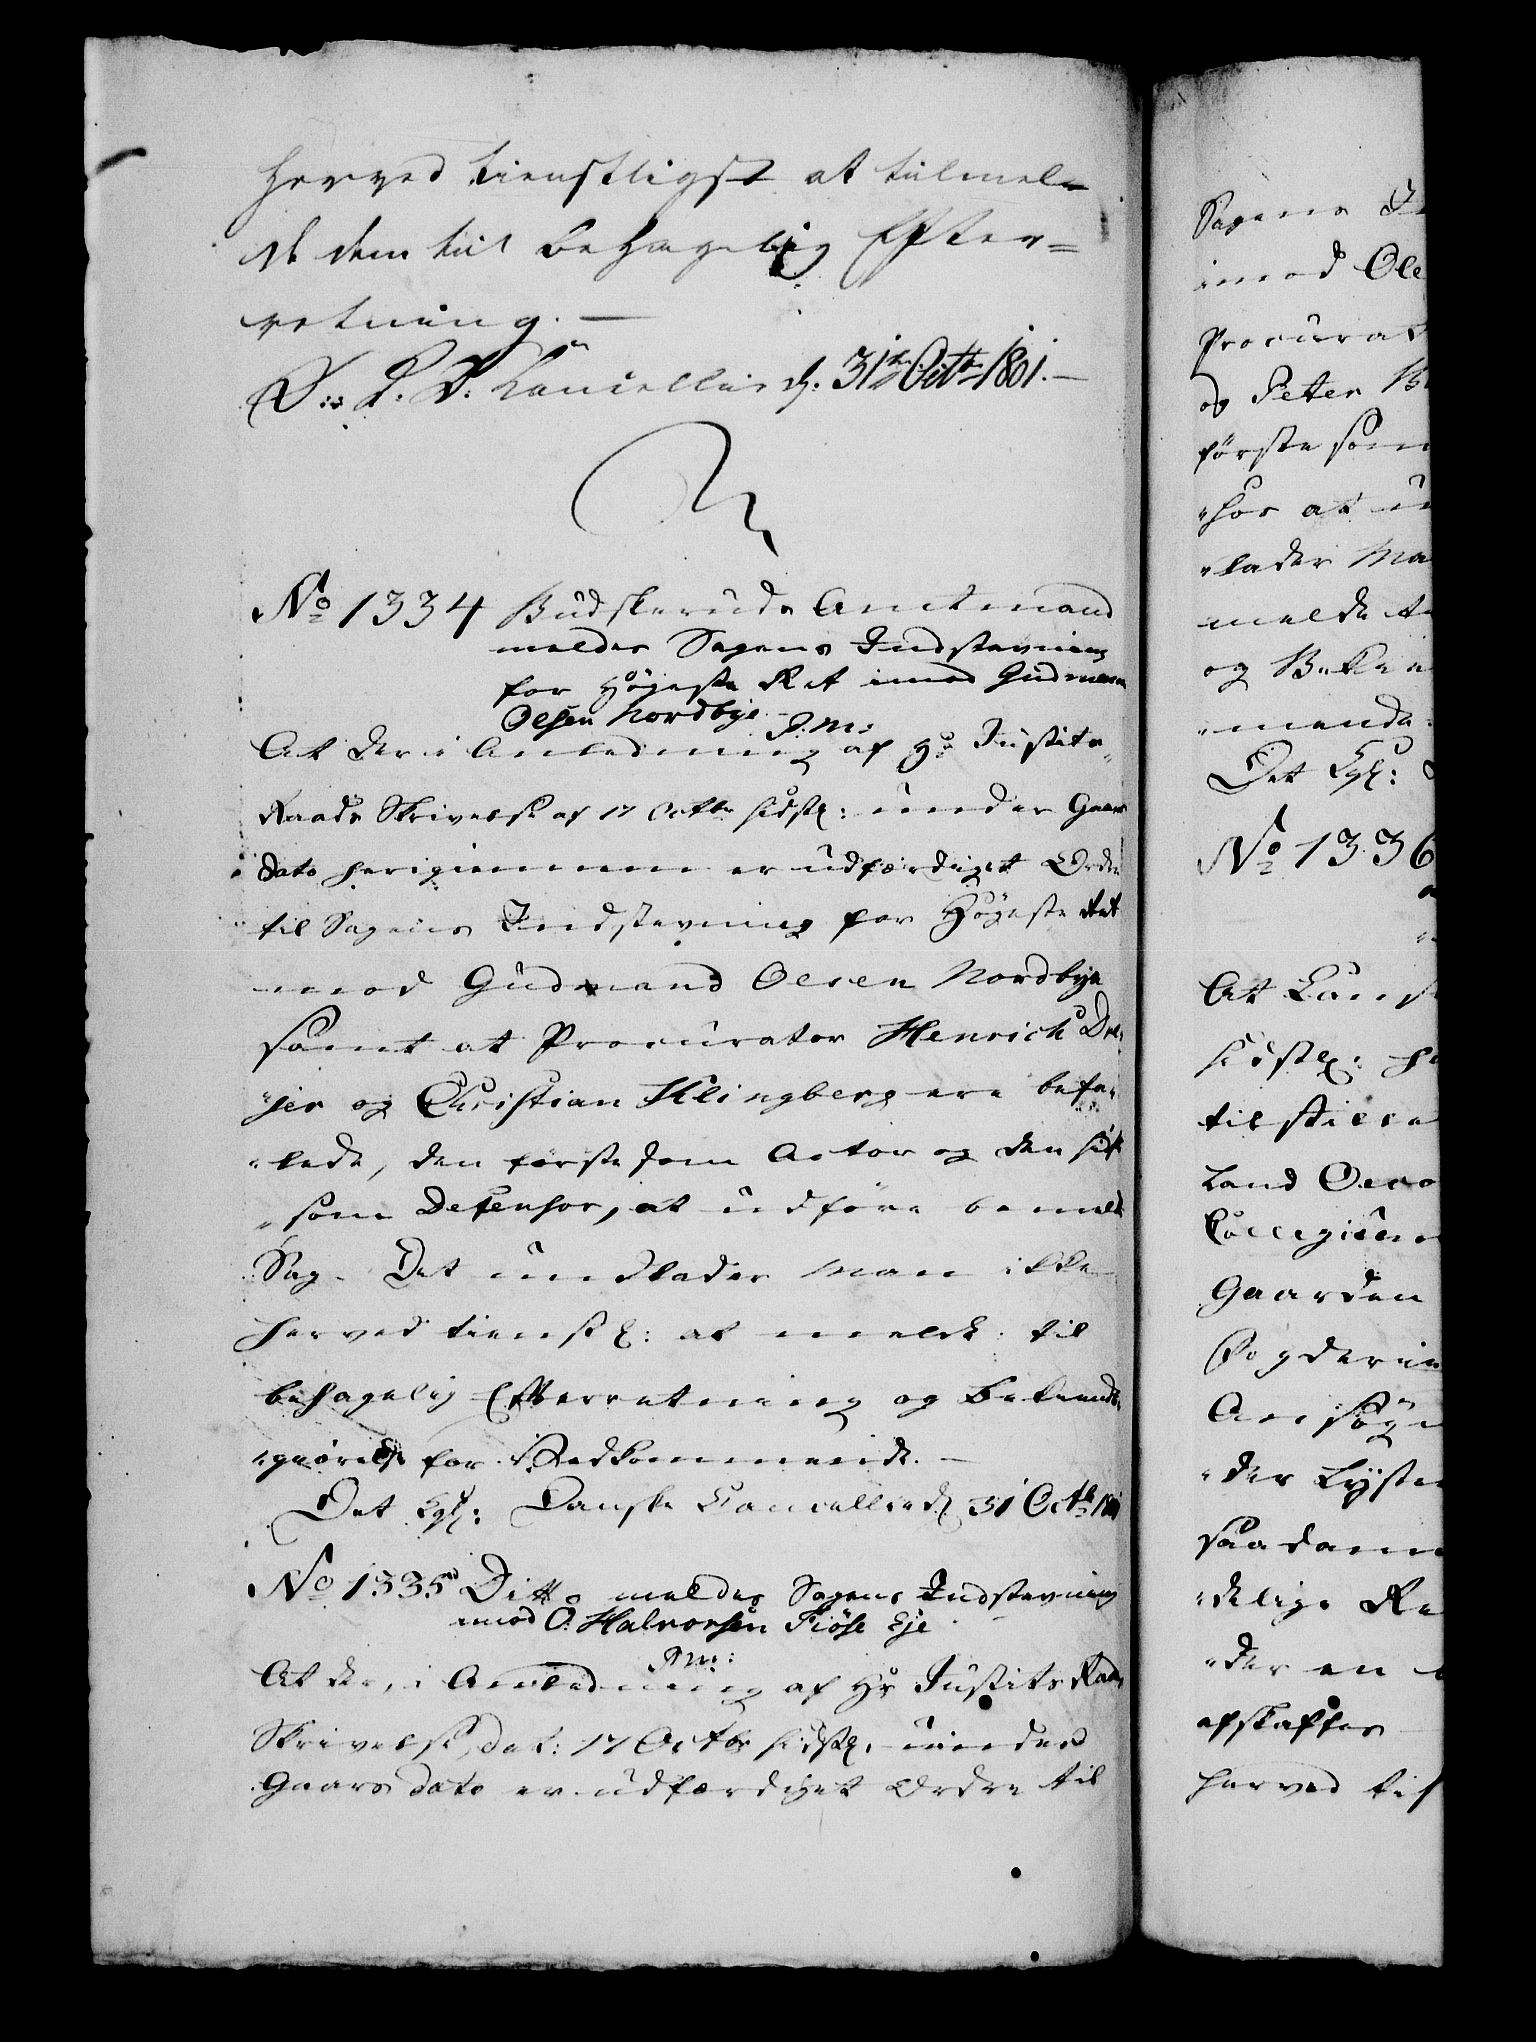 herved tienstligst at tilmel-
de dem til behagelig Efter=
retning. —
D: K: D: Cancellie d: 31te Octbr 1801. —
No 1334 Budskeruds Amtmand
meldes Sagens Indstævning
for Høyeste Ret imod Gudmann
Olsen Nordbye
P. M:
At der i Anledning af Hr Justits-
Raads Skrivelse af 17 Octbr sidstl: under Gaars
Dato herigiennem er udfærdiget Ordre
til Sagens Indstævning for Høyeste Ret
imod Gudmand Olsen Nordbye
samt at Procurator Henrich Dre-
"jer og Christian Klingberg ere befa-
"lede, den første som Actor og den sidst
"som Defensor, at udføre bemeldte
Sag. Det undlader man ikke
herved tienstl: at melde til
behagelig Efterretning og Bekiendt-
"giørelse for Vedkommende. —
Det Kgl: Danske Cancellie d. 31 Octbr 1801
No 1335 Ditto meldes Sagens Indstævning
imod O. Halvorsen Fiøse Eje
P. M:
At der, i Anledning af Hr Justits Raads
Skrivelse, dat: 17 Octbr sidstl. under
Gaars Dato er udfærdiget Ordre til
Sagens
imod Ole
Procurat
og Peter
første som
"hos at
"lader Ma
melde
og Bekien
"mende.
Det Kgl:
No 1336
At
sidstl:
tilstille
Land Oeco
Collegium
Gaarden
Fogderie
Ansøgn
"der
saadann
"delige Re
"der en
afskaffes
herved